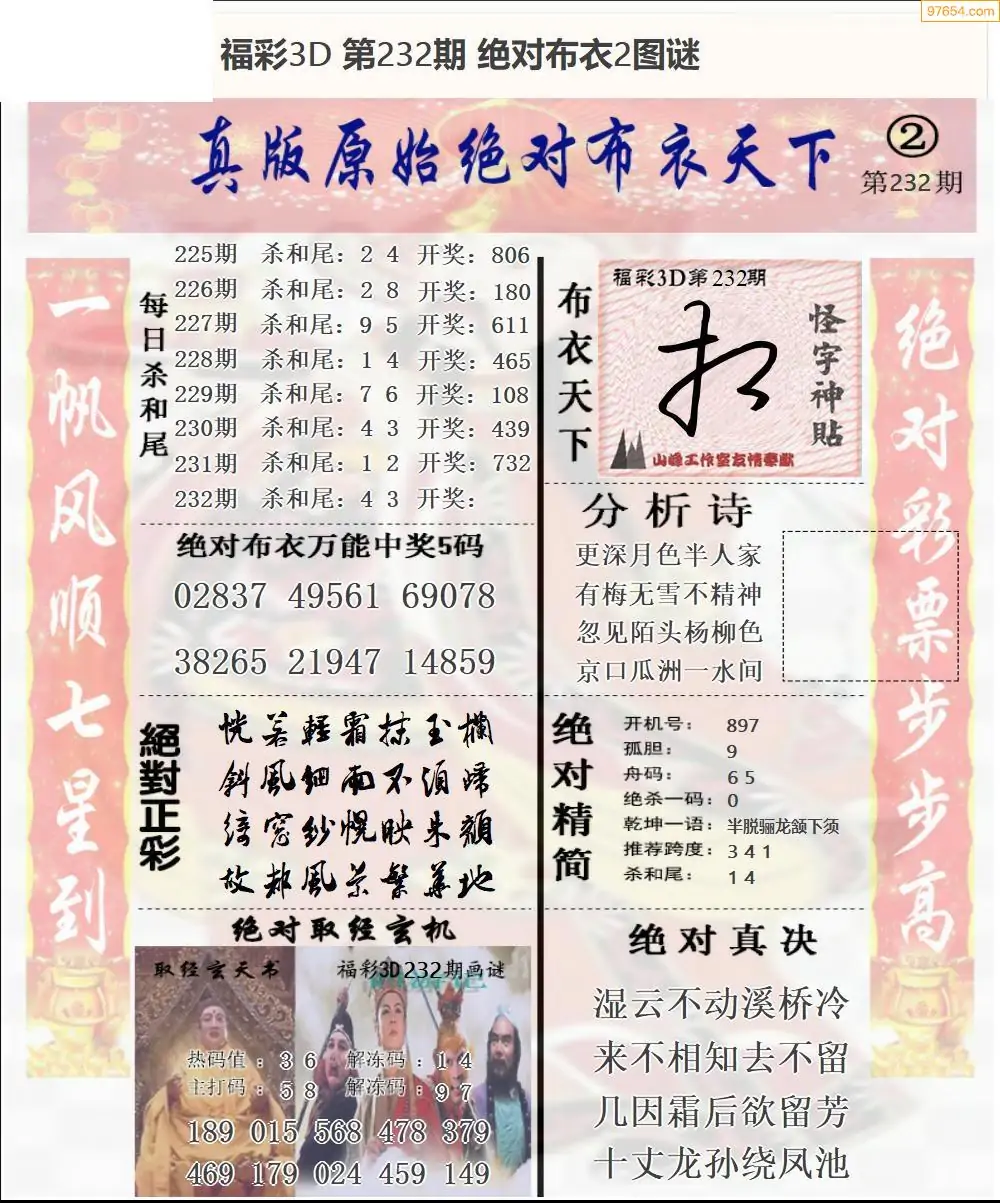 97654.com
福彩3D 第232期 绝对布衣2图谜
真版原始绝对布衣天下
②
第232期
一帆风顺七星到
每日杀和尾
225期 杀和尾：2 4 开奖：806
226期 杀和尾：2 8 开奖：180
227期 杀和尾：9 5 开奖：611
228期 杀和尾：1 4 开奖：465
229期 杀和尾：7 6 开奖：108
230期 杀和尾：4 3 开奖：439
231期 杀和尾：1 2 开奖：732
232期 杀和尾：4 3 开奖：
绝对布衣万能中奖5码
02837 49561 69078
38265 21947 14859
絕對正彩
恍若輕霜抹玉欄
斜風細雨不須歸
綠窓紗幌映朱顏
故都風景繁華地
绝对取经玄机
取经玄天书
福彩3D232期画谜
热码值：3 6 解冻码：1 4
主打码：5 8 解冻码：9 7
189 015 568 478 379
469 179 024 459 149
布衣天下
福彩3D第232期
怪字神貼
山峰工作室友情奉献
分析诗
更深月色半人家
有梅无雪不精神
忽见陌头杨柳色
京口瓜洲一水间
绝对精简
开机号：897
孤胆：9
舟码：6 5
绝杀一码：0
乾坤一语：半脱骊龙颔下须
推荐跨度：3 4 1
杀和尾：1 4
绝对真决
湿云不动溪桥冷
来不相知去不留
几因霜后欲留芳
十丈龙孙绕凤池
绝对彩票步步高